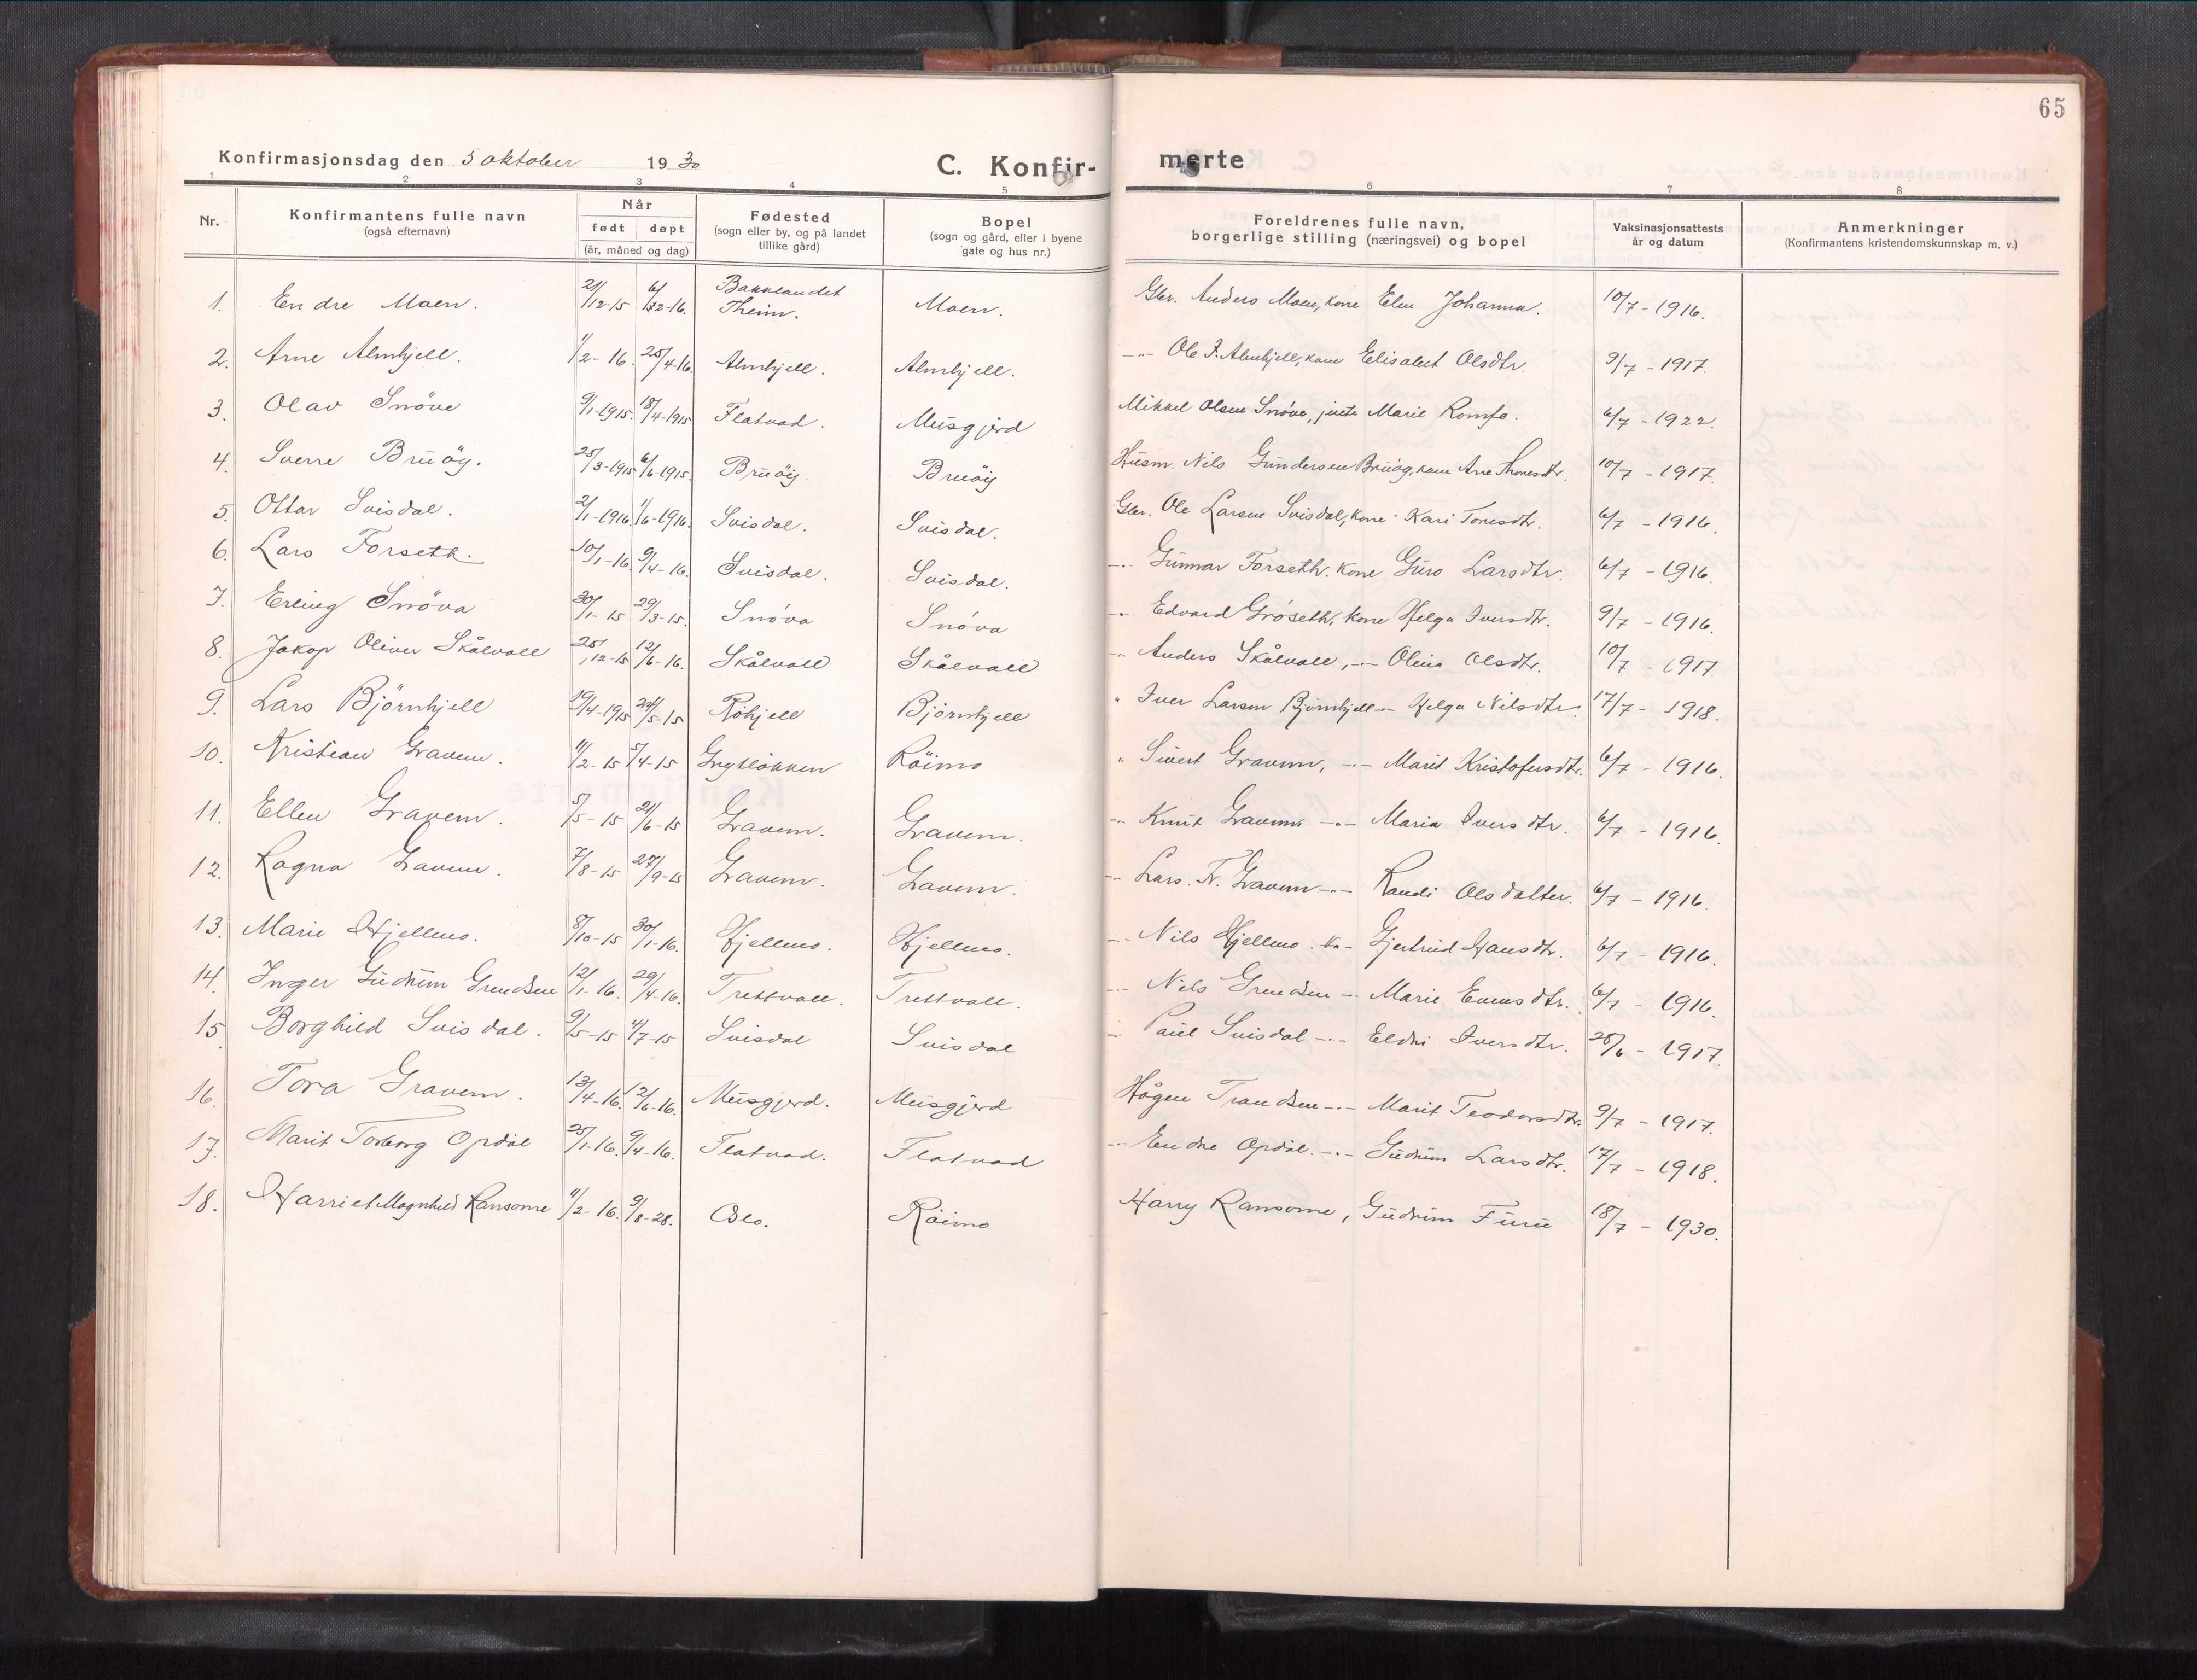 65
Konfirmasjonsdag den 5 oktober 1930
C. Konfir-
merte
1 2 3 4 5 6 7 8
Nr.
Konfirmantens fulle navn
(også efternavn)
Når
født døpt
(år, måned og dag)
Fødested
(sogn eller by, og på landet
tillike gård)
Bopel
(sogn og gård, eller i byene
gate og hus nr.)
Foreldrenes fulle navn,
borgerlige stilling (næringsvei) og bopel
Vaksinasjonsattests
år og datum
Anmerkninger
(Konfirmantens kristendomskunnskap m. v.)
1. Endre Moen. 21/12-15 6/2-16. Bakklandet Theim. Moen. Gbr. Anders Moen, kone Elen Johanna. 10/7-1916.
2. Arne Almhjell. 1/2-16. 25/4-16. Almhjell. Almhjell. -"- Ole I. Almhjell, kone Elisabet Olsdtr. 9/7-1917.
3. Olav Snöve 9/1-1915. 18/4-1915 Flatvad. Musgjerd Mikkel Olsen Snöve, jente Marie Romfo. 6/7-1922.
4. Sverre Bruöy. 25/3-1915 6/6-1915. Bruöy Bruöy Husm. Nils Gundersen Bruöy, kone Ane Thoresdtr. 10/7-1917.
5. Ottar Svisdal. 2/1-1916 1/6-1916. Svisdal. Svisdal. Gbr. Ole Larsen Svisdal, kone Kari Toresdtr. 6/7-1916.
6. Lars Forseth. 10/1-16. 9/4-16. Svisdal. Svisdal. -"- Gunnar Forseth. Kone Guro Larsdtr. 6/7-1916.
7. Erling Snöva 30/1-15 29/3-15. Snöva Snöva -"- Edvard Gröseth, Kone Helga Iversdtr. 9/7-1916.
8. Jakop Oliver Skålvoll 25/12-15 12/6-16. Skålvoll Skålvoll -"- Anders Skålvoll, -"- Olina Olsdtr. 10/7-1917.
9. Lars Björnhjell 19/4-1915 24/5-15 Röhjell Björnhjell " Iver Larsen Björnhjell -"- Helga Nilsdtr. 17/7-1918.
10. Kristian Gravem. 11/2-15 5/4-15 Grytløkken Röimo " Sivert Gravem, -"- Marit Kristofersdtr. 6/7-1916.
11. Ellen Gravem. 5/5-15 21/6-15 Gravem. Gravem. -"- Knut Gravem -"- Maria Iversdtr. 6/7-1916.
12. Ragna Gravem. 7/8-15 27/9-15 Gravem. Gravem. -"- Lars. Tr. Gravem -"- Randi Olsdatter. 6/7-1916.
13. Marie Hjellmo. 8/10-15 30/1-16. Hjellmo. Hjellmo. -"- Nils Hjellmo. K. - Gjertrud Hansdtr. 6/7-1916.
14. Inger Gudrun Grendsen 12/1-16. 29/4-16. Trettvoll. Trettvoll. -"- Nils Grendsen -"- Marie Evensdtr. 6/7-1916.
15. Borghild Svisdal. 9/5-15 4/7-15 Svisdal Svisdal -"- Paul Svisdal -"- Eldri Iversdtr. 28/6-1917.
16. Tora Gravem. 13/4-16. 12/6-16. Musgjerd. Musgjerd Hågen Trondsen -"- Marit Teodorsdtr. 9/7-1917.
17. Marit Torborg Opdöl 25/1-16. 9/4-16. Flatvad. Flatvad -"- Endre Opdöl. -"- Gudrun Larsdtr. 17/7-1918.
18. Harriet Magnhild Ransome 11/2-16. 9/8-28. Oslo. Röimo Harry Ransome, Gudrun Furu 18/7-1930.